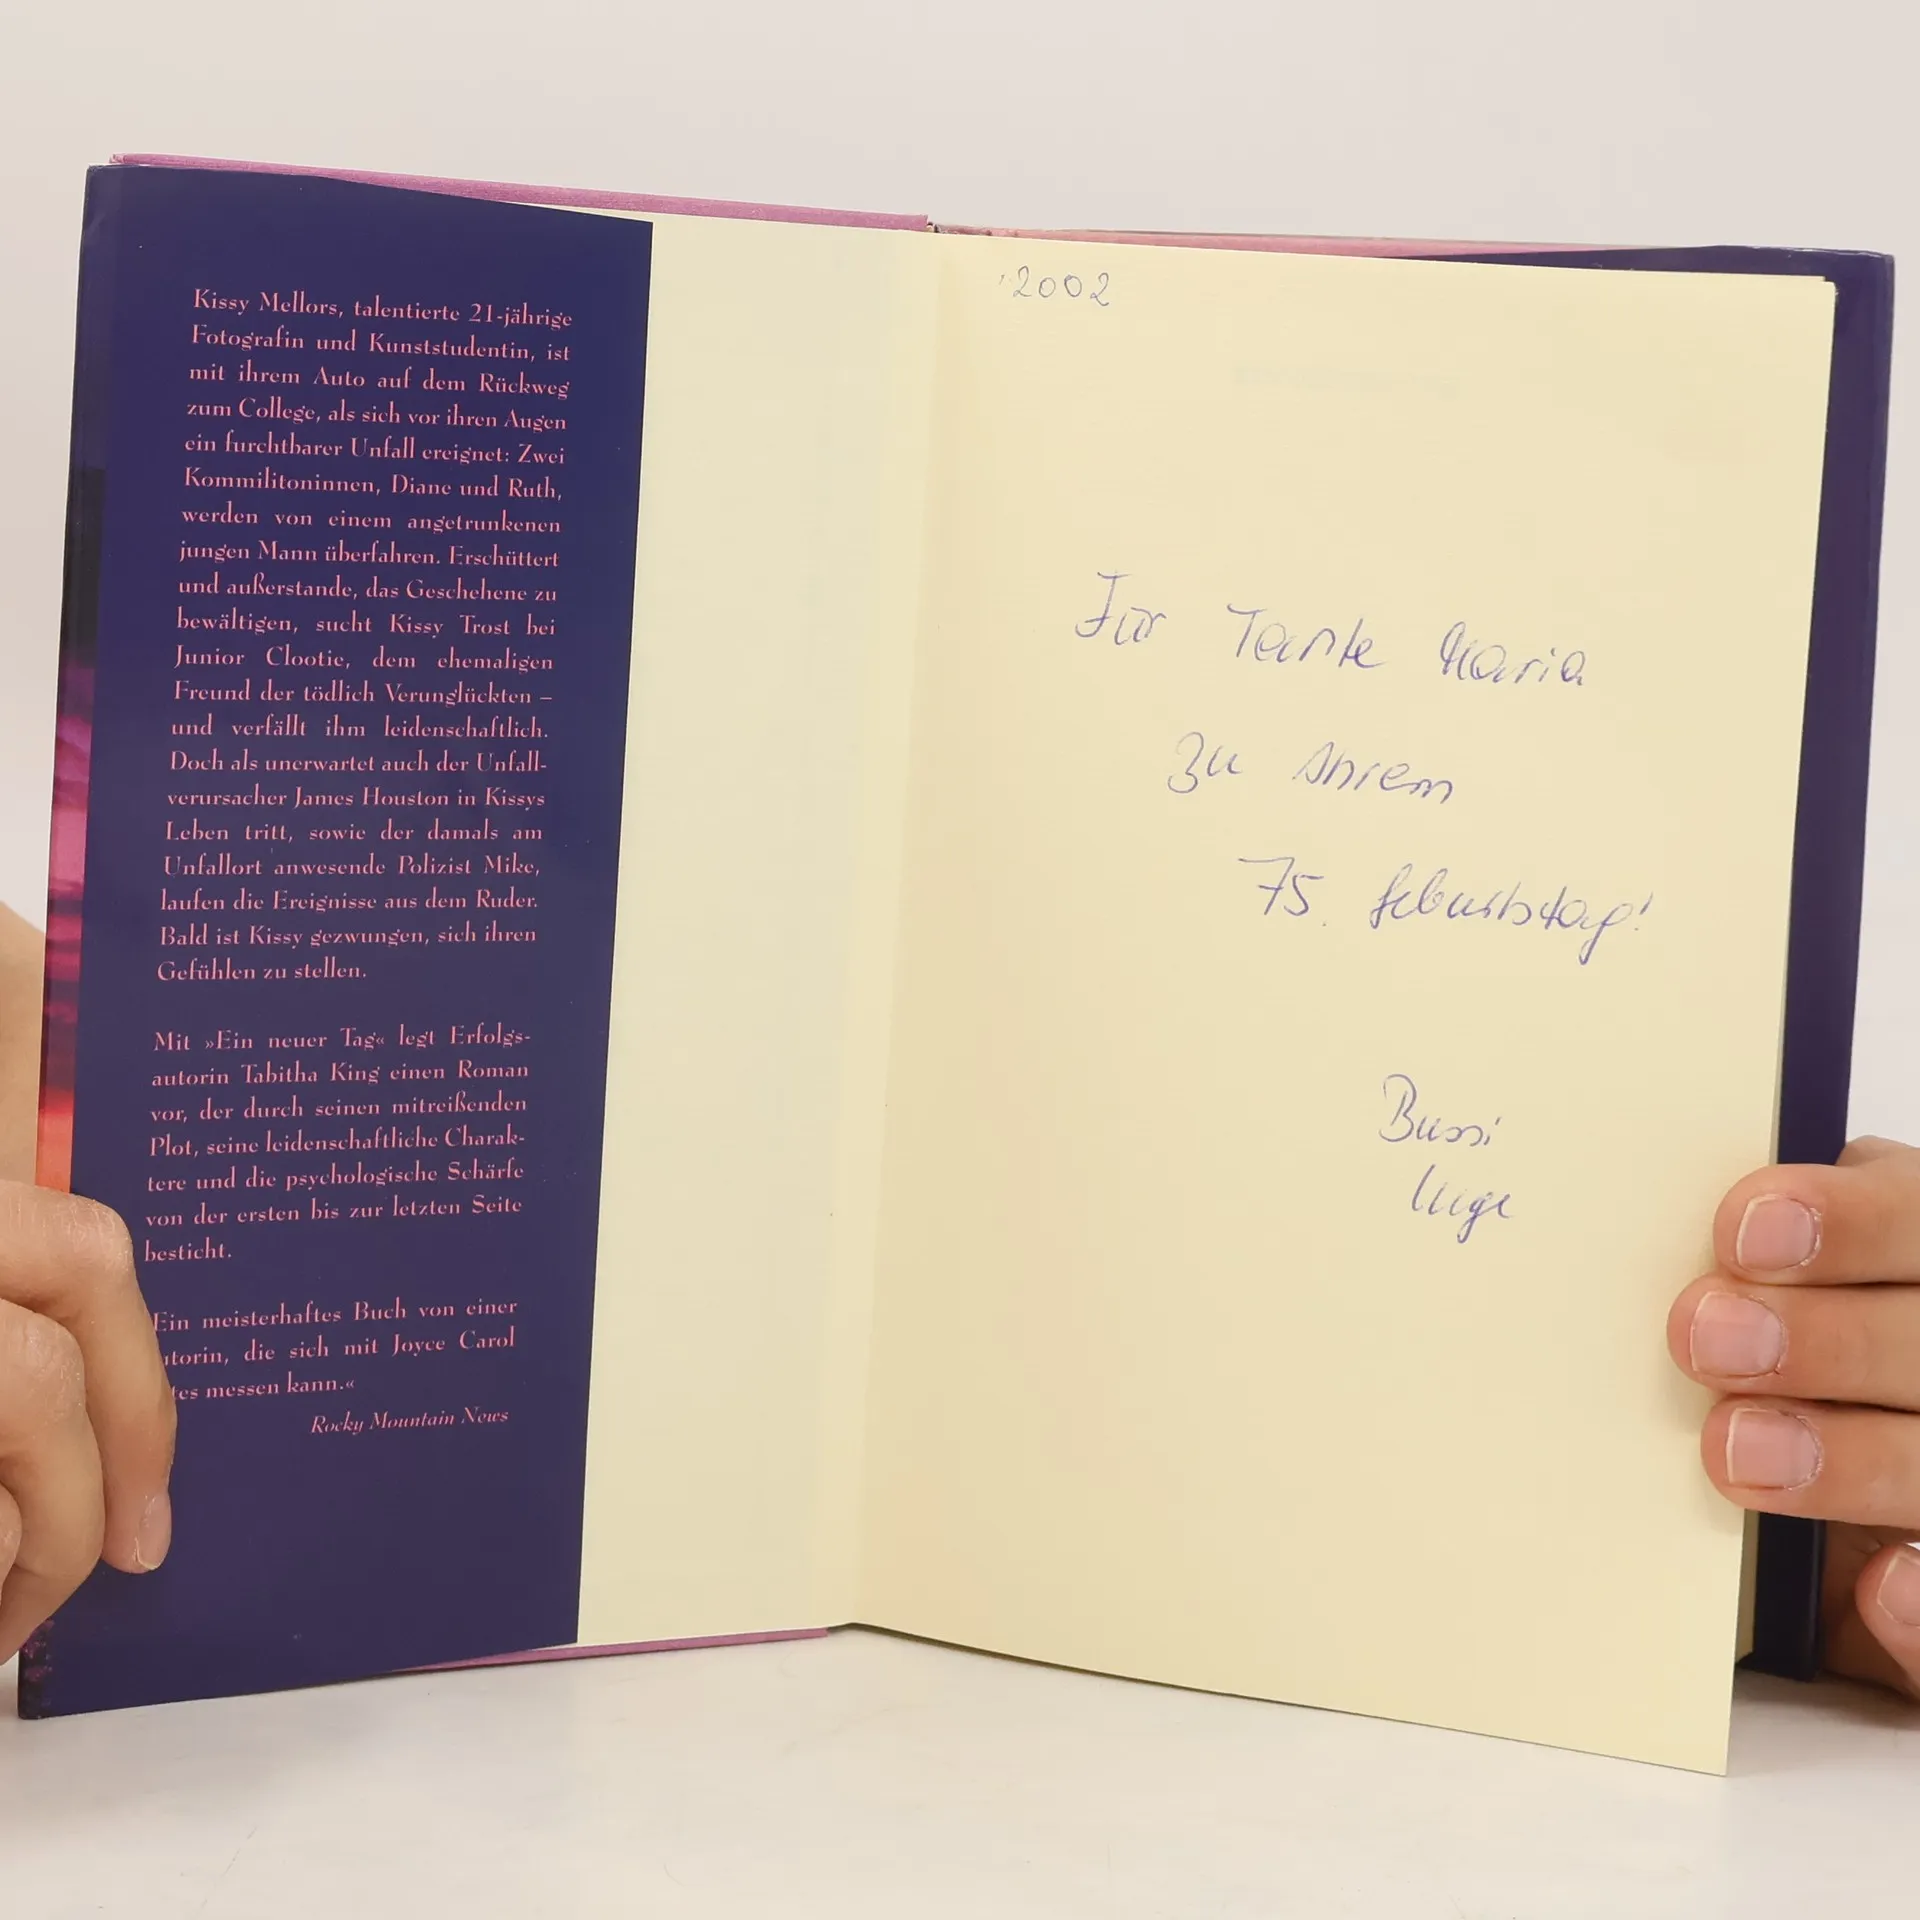 Kissy Mellors, talentierte 21-jährige
Fotografin und Kunststudentin, ist
mit ihrem Auto auf dem Rückweg
zum College, als sich vor ihren Augen
ein furchtbarer Unfall ereignet: Zwei
Kommilitoninnen, Diane und Ruth,
werden von einem angetrunkenen
jungen Mann überfahren. Erschüttert
und außerstande, das Geschehene zu
bewältigen, sucht Kissy Trost bei
Junior Clootie, dem ehemaligen
Freund der tödlich Verunglückten –
und verfällt ihm leidenschaftlich.
Doch als unerwartet auch der Unfall-
verursacher James Houston in Kissys
Leben tritt, sowie der damals am
Unfallort anwesende Polizist Mike,
laufen die Ereignisse aus dem Ruder.
Bald ist Kissy gezwungen, sich ihren
Gefühlen zu stellen.
Mit »Ein neuer Tag« legt Erfolgs-
autorin Tabitha King einen Roman
vor, der durch seinen mitreißenden
Plot, seine leidenschaftliche Charak-
tere und die psychologische Schärfe
von der ersten bis zur letzten Seite
besticht.
Ein meisterhaftes Buch von einer
utorin, die sich mit Joyce Carol
tes messen kann.«
Rocky Mountain News
2002
Für Tante Maria
zu Ihrem
75. Geburtstag!
Bussi